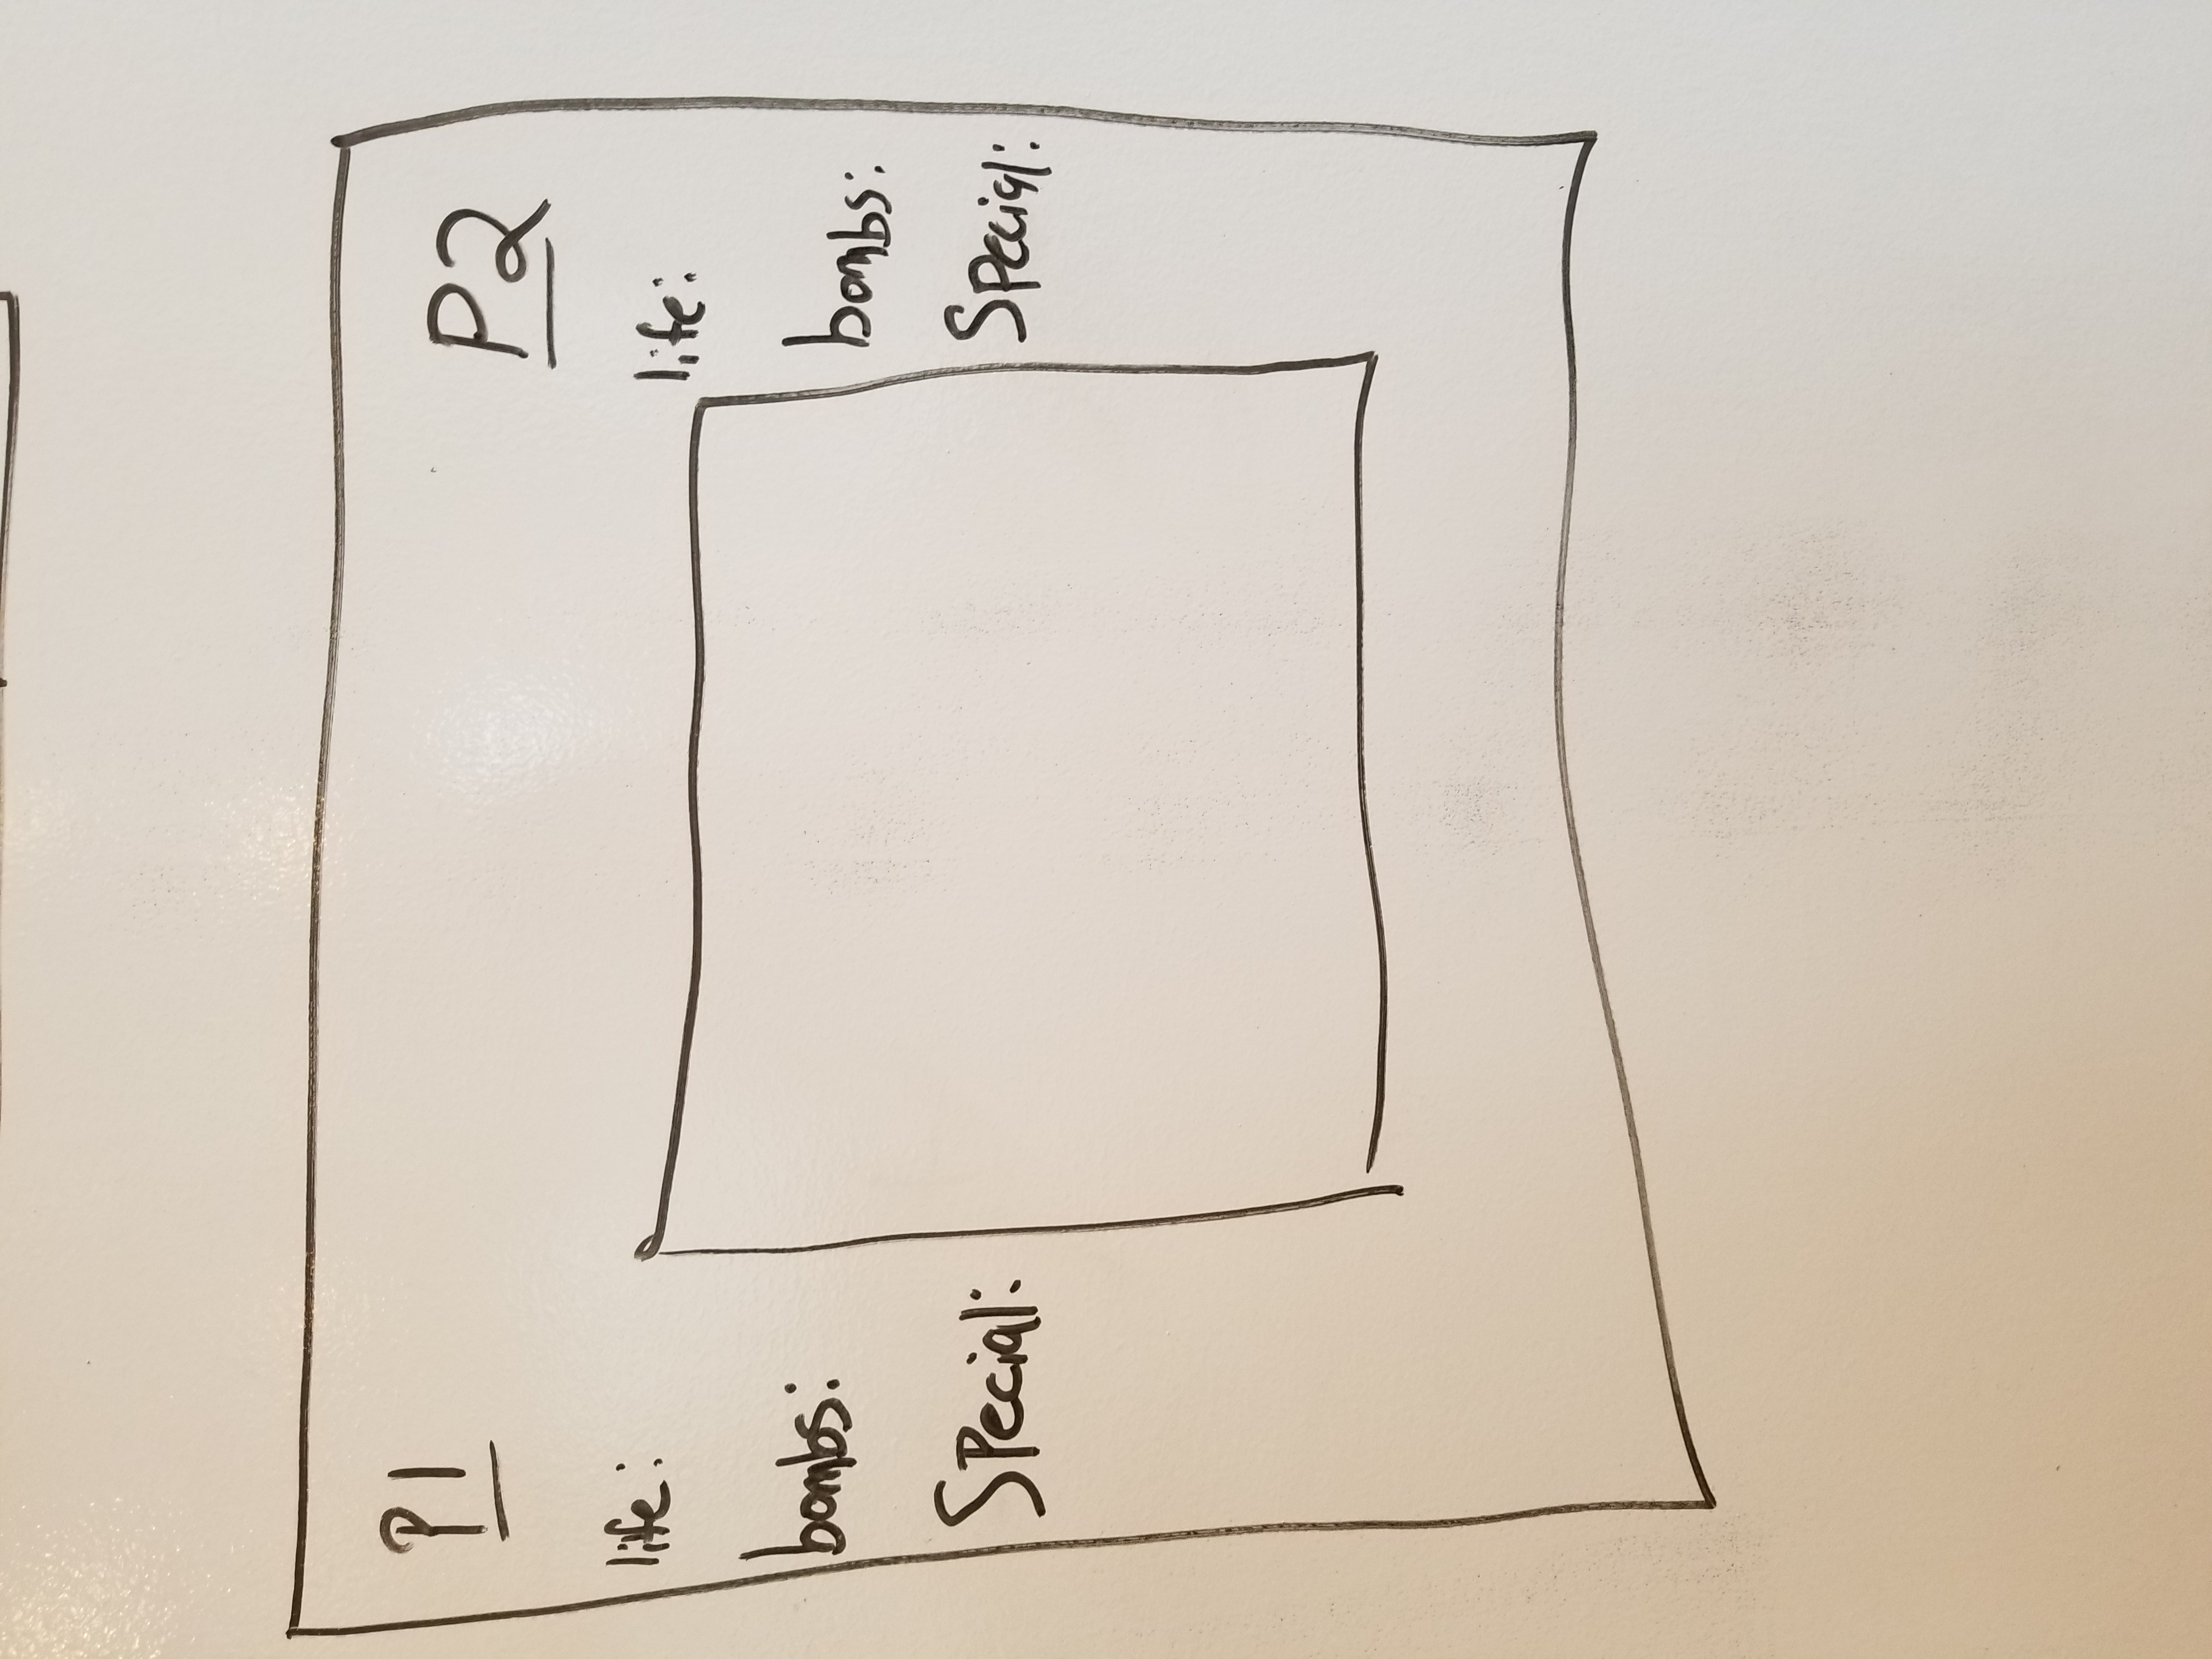 P1
life:
bombs:
Special:
P2
life:
bombs:
Special: